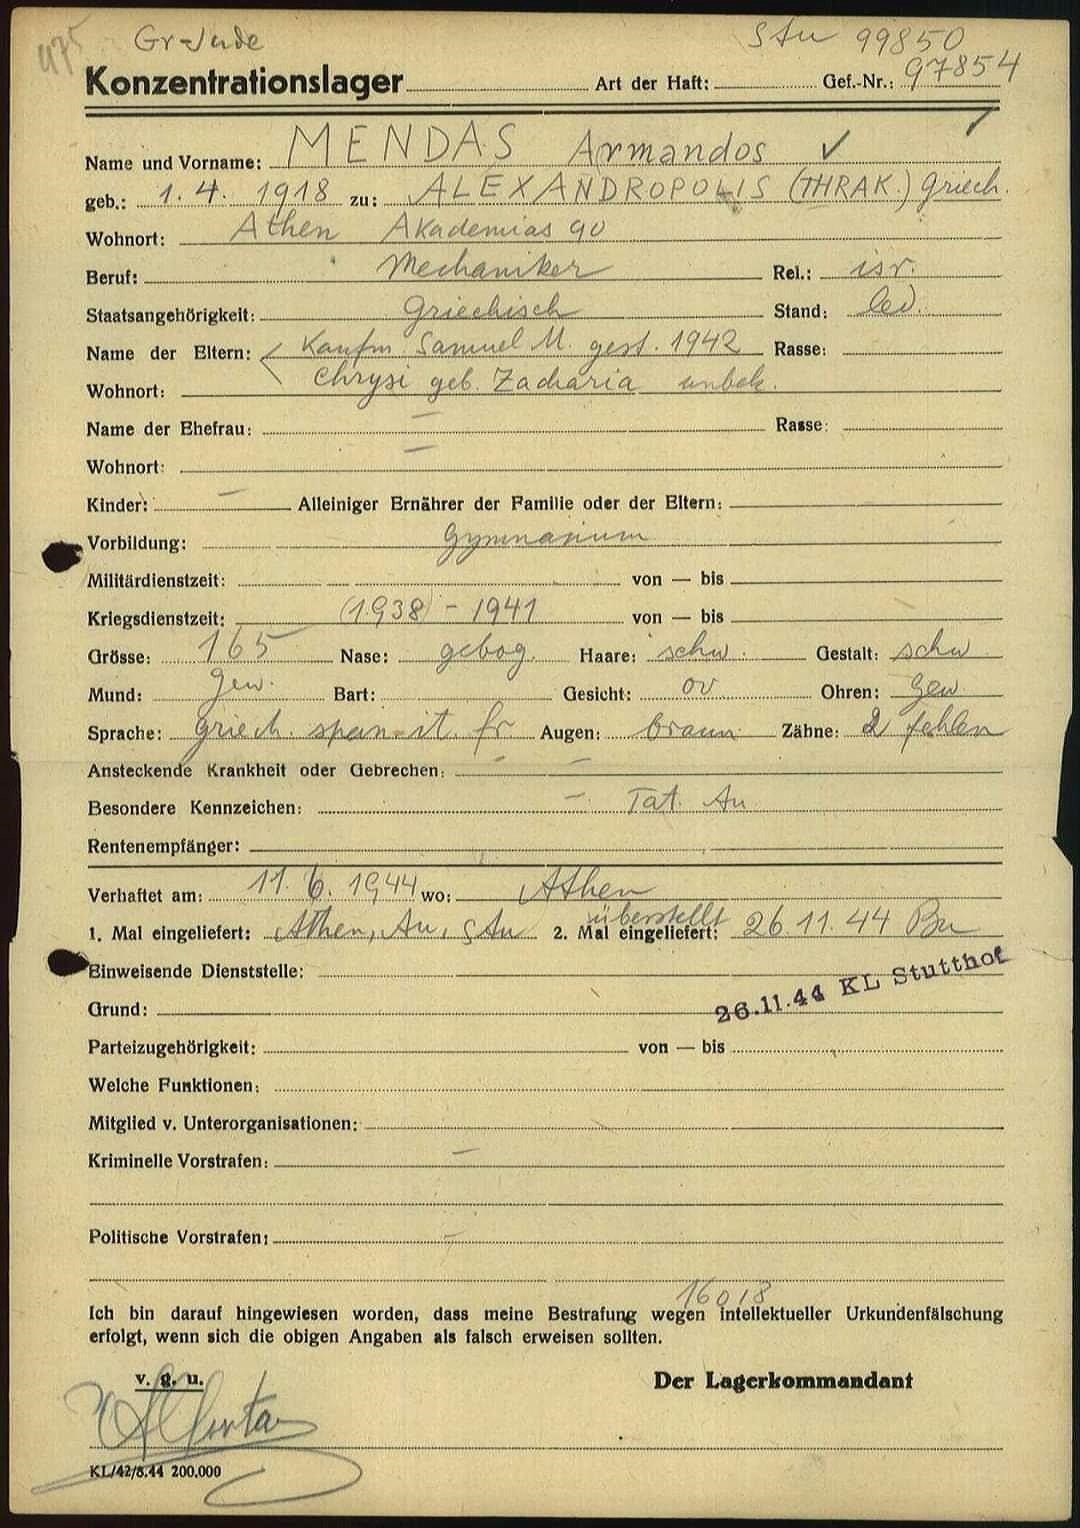 475 Gr-Jude Stu 99850
Konzentrationslager Art der Haft: Gef.-Nr.: 97854
Name und Vorname: MENDAS Armandos ✓
geb.: 1.4. 1918 zu: ALEXANDROPOLIS (THRAK.) Griech.
Wohnort: Athen Akademias 90
Beruf: Mechaniker Rel.: isr.
Staatsangehörigkeit: Griechisch Stand: led.
Name der Eltern: Kaufm Samuel M. gest. 1942 Rasse:
Wohnort: Chrysi geb. Zacharia unbek.
Name der Ehefrau: — Rasse:
Wohnort: —
Kinder: — Alleiniger Ernährer der Familie oder der Eltern:
Vorbildung: Gymnasium
Militärdienstzeit: von — bis
Kriegsdienstzeit: (1938) - 1941 von — bis
Grösse: 165 Nase: gebog. Haare: schw. Gestalt: schw
Mund: gew. Bart: Gesicht: ov Ohren: gew
Sprache: griech. span-it. fr. Augen: braun Zähne: 2 fehlen
Ansteckende Krankheit oder Gebrechen: — —
Besondere Kennzeichen: — Tät. Au
Rentenempfänger:
Verhaftet am: 11. 6. 1944 wo: Athen
überstellt
1. Mal eingeliefert: Athen, Au, Stu 2. Mal eingeliefert: 26.11.44 Bu
Einweisende Dienststelle:
26.11.44 KL Stutthof
Grund:
Parteizugehörigkeit: von — bis
Welche Funktionen:
Mitglied v. Unterorganisationen:
Kriminelle Vorstrafen: —
Politische Vorstrafen: —
16018
Ich bin darauf hingewiesen worden, dass meine Bestrafung wegen intellektueller Urkundenfälschung
erfolgt, wenn sich die obigen Angaben als falsch erweisen sollten.
v. g. u. Der Lagerkommandant
KL/42/8.44 200.000